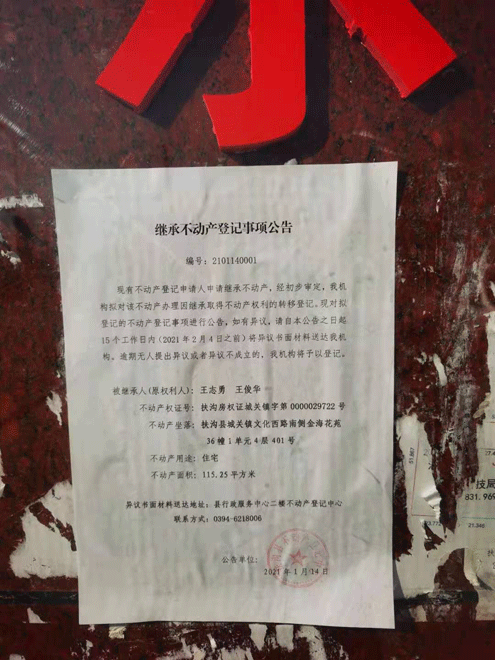 继承不动产登记事项公告
编号：2101140001
现有不动产登记申请人申请继承不动产，经初步审定，我机
构拟对该不动产办理因继承取得不动产权利的转移登记。现对拟
登记的不动产登记事项进行公告，如有异议，请自本公告之日起
15个工作日内（2021年2月4日之前）将异议书面材料送达我机
构。逾期无人提出异议或者异议不成立的，我机构将予以登记。
被继承人（原权利人）：王志勇 王俊华
不动产权证号：扶沟房权证城关镇字第0000029722号
不动产坐落：扶沟县城关镇文化西路南侧金海花苑
36幢1单元4层401号
不动产用途：住宅
不动产面积：115.25平方米
异议书面材料送达地址：县行政服务中心二楼不动产登记中心
联系方式：0394-6218006
公告单位：
2021年1月14日
技局
831.969